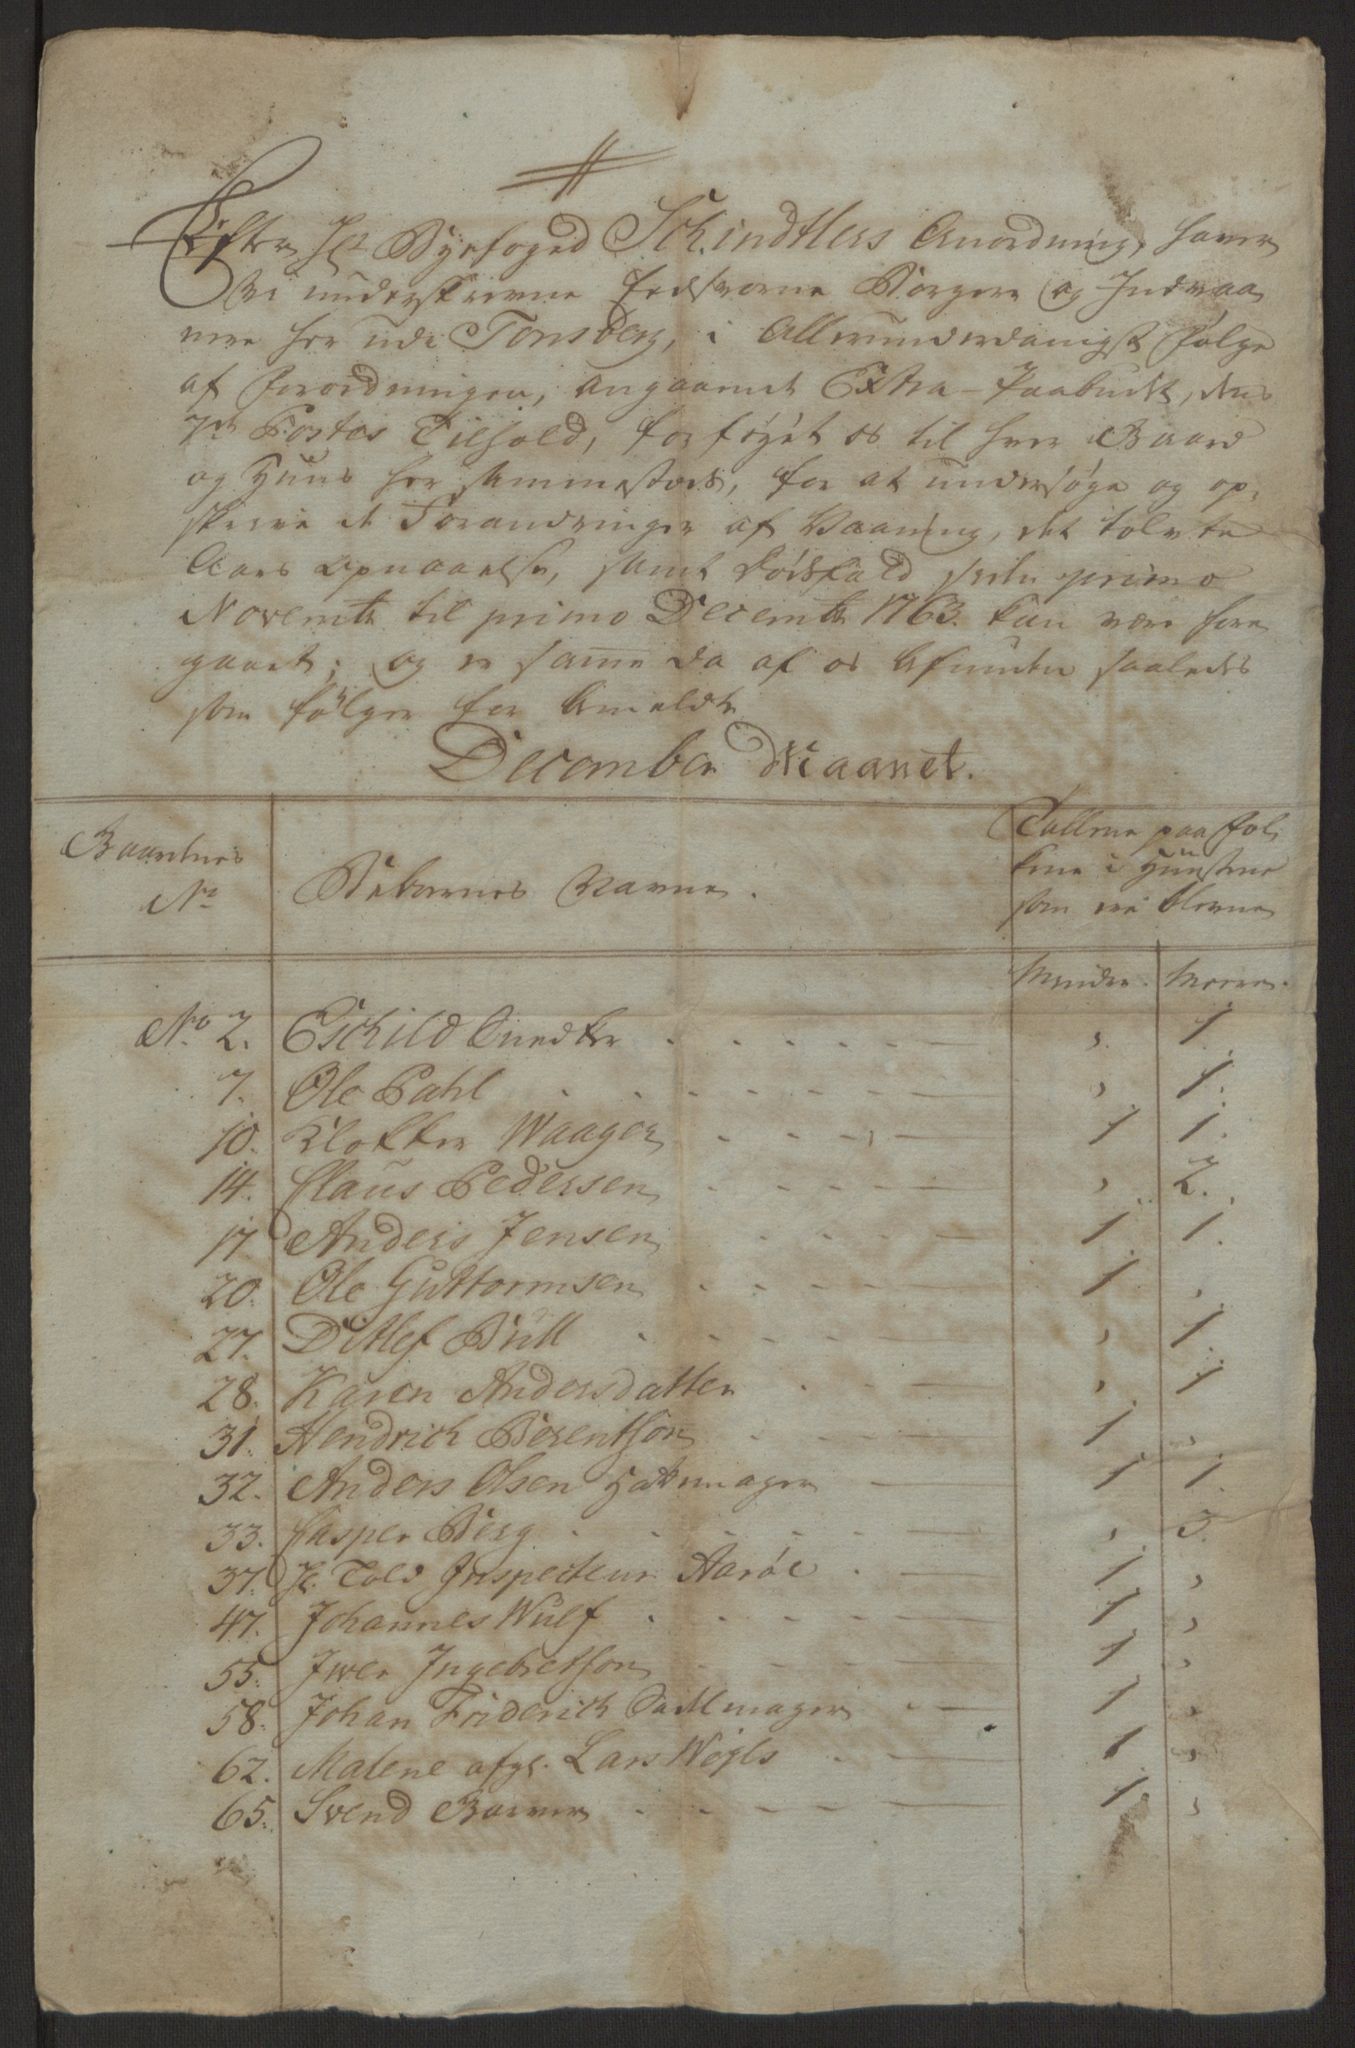 Efter Hr Byefoged Schindtlers Anordning, haver
Vi underskrevne Eedsvorne Borgere og Indvaa
nere her udi Tonsberg, i Allerunderdanigst følge
af Forordningen, angaaende Extra-Paabudet, dens
7de Postes Tilhold, forføyet os til hver Gaard
og Huus her sammesteds, for at undersøge og op
skrive de Forandringer af Vaaning, det tolvte
Aars opnaaelse, samt Dødsfald siden primo
Novembr til primo Decembr 1763. kan være fore
gaaet; og er samme da af os befunden saaledes
som følger for bemeldte
December Maanet.
Gaardnes No
Beboernes Navne.
Tallene paa Fol
kene i Huusene
som ere blevne
Mindre. Meere.
No 2. Eschild - - - - - " 1.
7. Ole Pahl - - - - - " 1.
10. Kloffer Waager - - - - 1 1.
14. Claus Pedersen - - - - " 2.
17 Anders Jensen - - - - 1 1.
20. Ole Guttormsen - - - - 1 "
27. Ditlef Bull - - - - " 1.
28. Karen Andersdatter - - - " 1
31. Hendrich Berentsøn - - - 1 "
32. Anders Olsen Hattemager - 1 1.
33. Casper Berg - - - - - " 3.
37. Hr. Told Inspecteur Aarøe - - 1 "
47. Johannes Wulf - - - - 1 "
55. Iver Ingebretsøn - - - 1 "
58. Johan Friderich Sadlmager - - 1 "
62. Malene afg. Lars Wøyls - - 1 "
65. Svend - - - - - 1 "